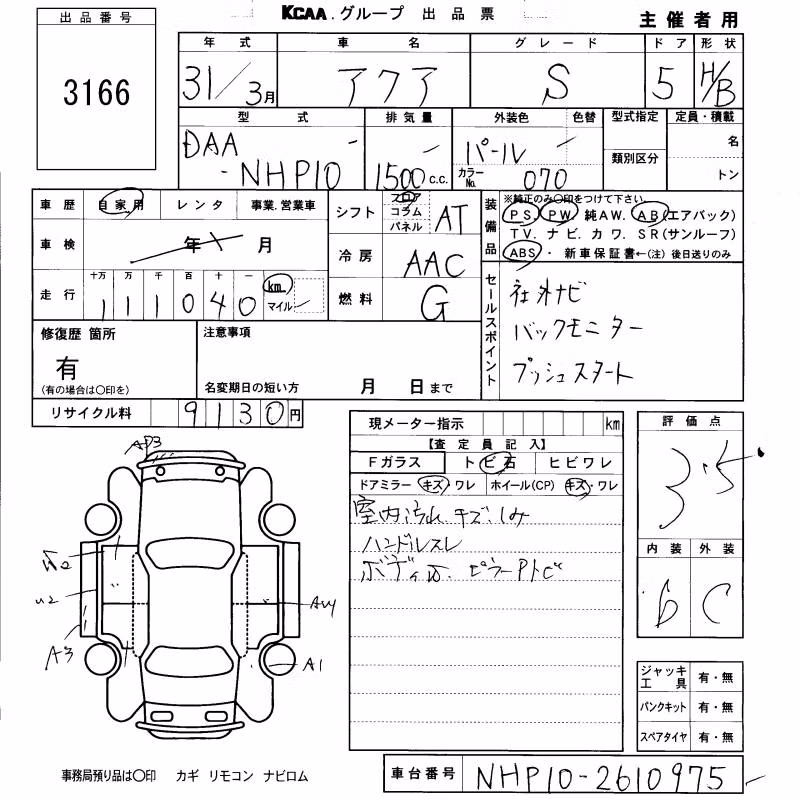 KCAA.グループ 出品票 主催者用
出品番号
3166
年式 車名 グレード ドア 形状
31/3月 アクア S 5 H/B
型式 排気量 外装色 色替 型式指定 定員・積載
DAA-NHP10 1500c.c. パール 類別区分 名
カラーNo. 070 トン
車歴 自家用 レンタ 事業.営業車
車検 年 月
走行 十万 万 千 百 十 一
111040 km マイル
シフト フロア コラム パネル AT
冷房 AAC
燃料 G
装備品 ※純正のみ○印をつけて下さい
PS. PW. 純AW. AB(エアバック)
TV. ナビ. カワ. SR(サンルーフ)
ABS・新車保証書←(注)後日送りのみ
セールスポイント
社外ナビ
バックモニター
プッシュスタート
修復歴 箇所 注意事項
有
(有の場合は○印を) 名変期日の短い方 月 日まで
リサイクル料 9130円
現メーター指示 km
【査定員記入】
Fガラス トビ石 ヒビワレ
ドアミラー キズ・ワレ ホイール(CP) キズ・ワレ
室内汚れ キズ.しみ
ハンドルスレ
ボディ
ピラーPトビ
評価点
3.5
内装 外装
b C
AP3
U2
A3
A1
ジャッキ工具 有・無
パンクキット 有・無
スペアタイヤ 有・無
事務局預り品は○印 カギ リモコン ナビロム
車台番号 NHP10-2610975